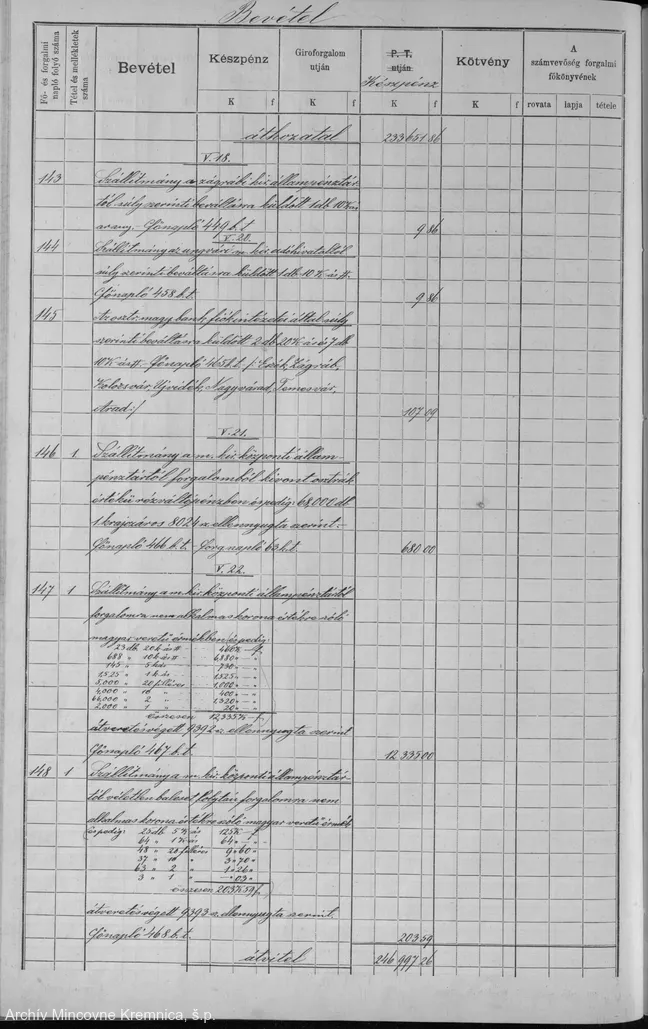 Bevétel
Fő- és forgalmi napló folyó száma
Tétel és mellékletek száma
Bevétel
Készpénz
Giroforgalom utján
P. T. utján
Készpénz
Kötvény
A számvevőség forgalmi főkönyvének
K f K f K f K f rovata lapja tétele
áthozatal 233651 86
V. 18.
143 Szállitmány a zágrábi kir. állampénztár-
tól súly szerinti beváltásra küldött 1 db 10 K-ás
arany. Főnapló 449 b. t. 9 86
V. 20.
144 Szállitmány az ungvári m. kir. adóhivataltól
súly szerinti beváltásra küldött 1 db 10 K-ás
Főnapló 458 b. t. 9 86
145 Az osztr. magy. bank fiókintézetei által súly
szerinti beváltásra küldött 2 db 20 K-ás és 7 db
10 K-ás Főnapló 465 b. t. /: Eszék, Zágráb,
Kolozsvár, Ujvidék, Nagyvárad, Temesvár,
Arad :/ 107 09
V. 21.
146 1 Szállitmány a m. kir. központi állam-
pénztártól forgalomból kivont osztrák
értékű rézváltópénzben és pedig: 68.000 db
1 krajczáros 8024 sz. ellennyugta szerint.-
Főnapló 466 b. t. Forg. napló 63 b. t. 680 00
V. 22.
147 1 Szállitmány a m. kir. központi állampénztártól
forgalomra nem alkalmas korona értékre szóló
magyar veretű érmékben és pedig:
23 db 20 K-ás 460 K - f
688 " 10 K-ás 6880 " - "
145 " 5 K-ás 730 " - "
1.525 " 1 K-ás 1.525 " - "
5,000 " 20 filléres 1.000 " - "
4,000 " 10 " 400 " - "
66,000 " 2 " 1,320 " - "
2.000 " 1 " 20 " - "
összesen 12,335 K - f
átveretés végett 9392 sz. ellennyugta szerint
Főnapló 467 b. t. 12 335 00
148 1 Szállitmány a m. kir. központi állampénztár-
tól véletlen baleset folytán forgalomra nem
alkalmas korona értékre szóló magyar veretű érmékb.
és pedig: 25 db 5 K-ás 125 K - f
64 " 1 K-ás 64 " - "
48 " 20 filléres 9 " 60 "
37 " 10 " 3 " 70 "
63 " 2 " 1 " 26 "
3 " 1 " - " 03 "
összesen 203 K 59 f.
átveretés végett 9393 sz. ellennyugta szerint.
Főnapló 468 b. t. 203 59
átvitel 246 997 26
Archív Mincovne Kremnica, š.p.